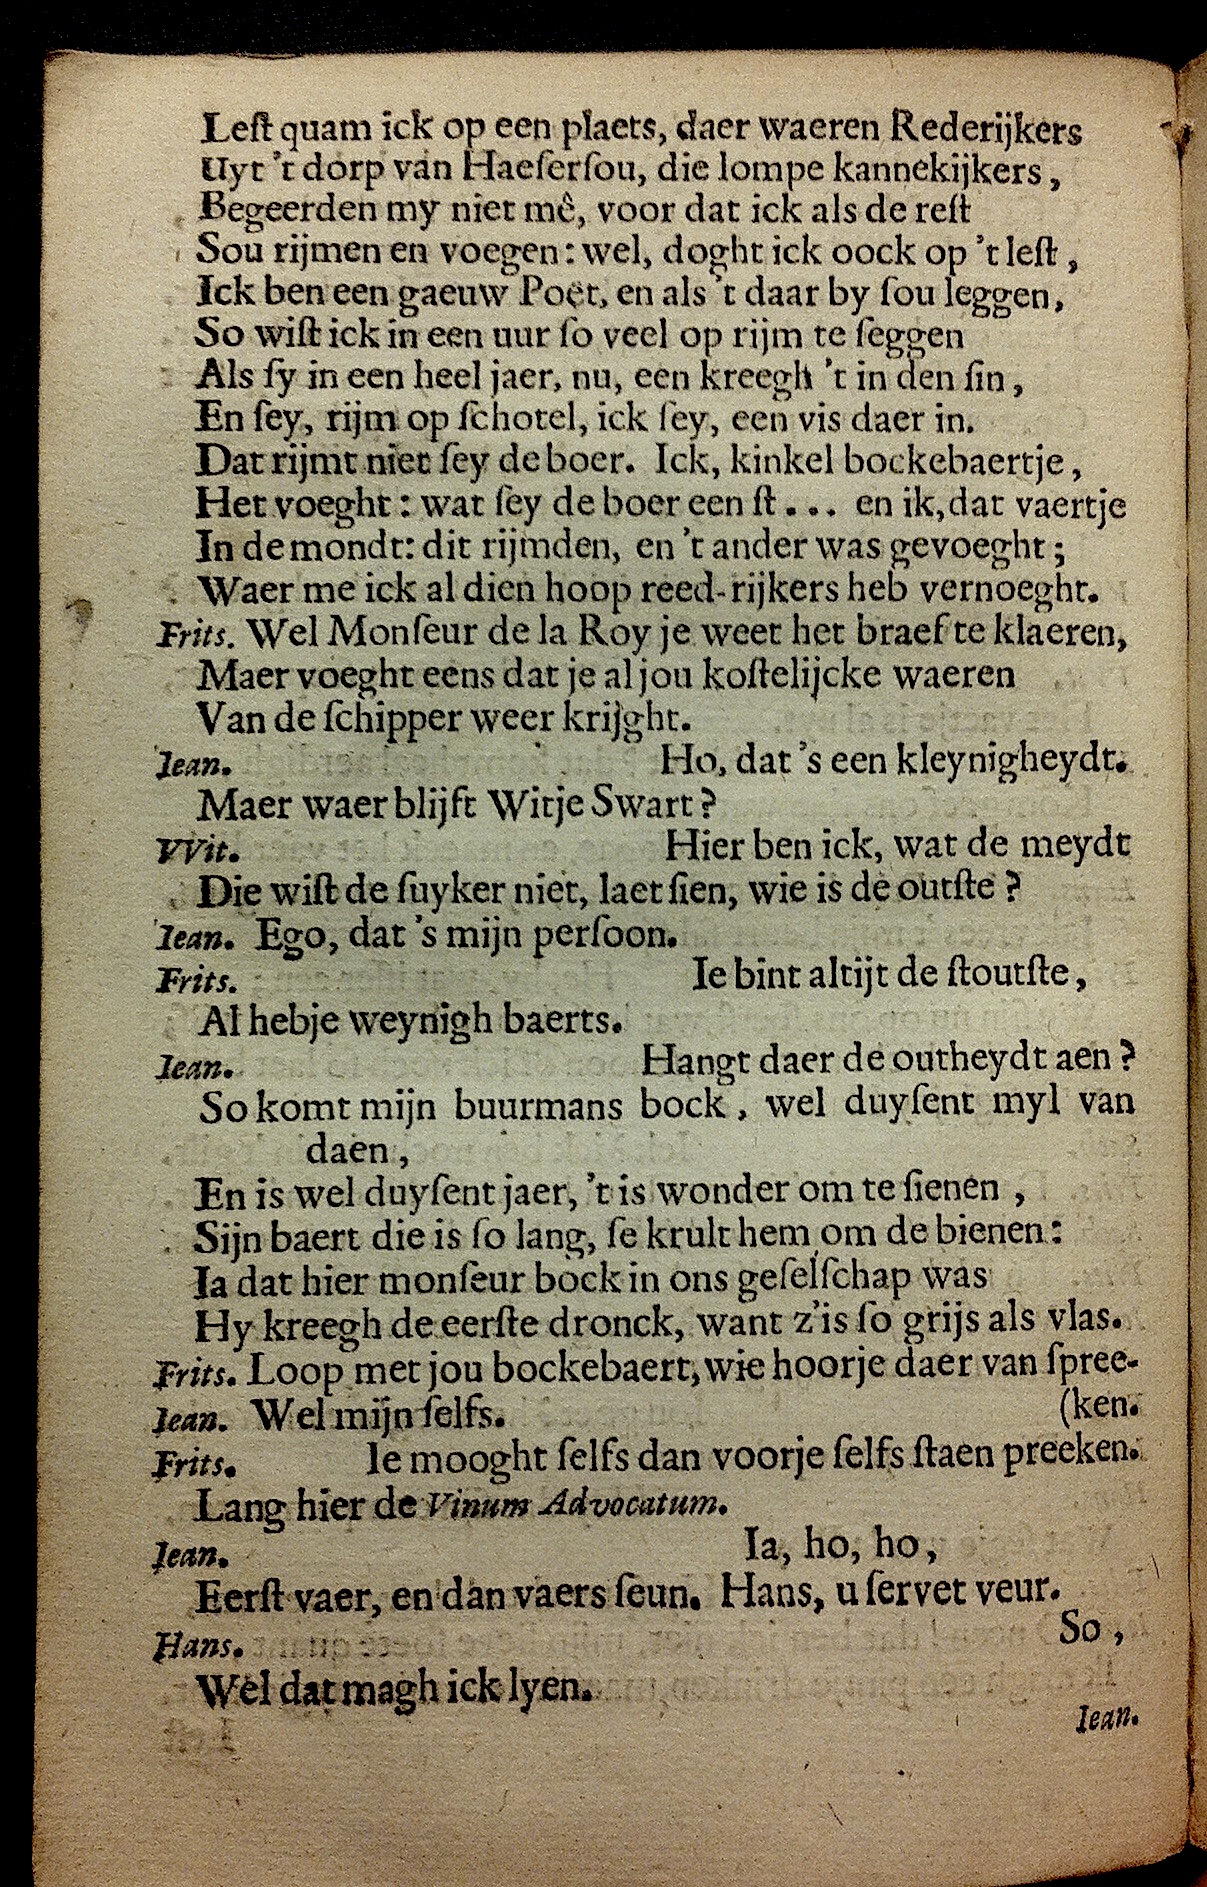 Leſt quam ick op een plaets, daer waeren Rederijkers
Uyt 't dorp van Haeſerſou, die lompe kannekijkers,
Begeerden my niet mê, voor dat ick als de reſt
Sou rijmen en voegen: wel, doght ick oock op 't leſt,
Ick ben een gaeuw Poët, en als 't daar by ſou leggen,
So wiſt ick in een uur ſo veel op rijm te ſeggen
Als ſy in een heel jaer, nu, een kreegh 't in den ſin,
En ſey, rijm op ſchotel, ick ſey, een vis daer in.
Dat rijmt niet ſey de boer. Ick, kinkel bockebaertje,
Het voeght: wat ſey de boer een ſt... en ik, dat vaertje
In de mondt: dit rijmden, en 't ander was gevoeght;
Waer me ick al dien hoop reed-rijkers heb vernoeght.
Frits. Wel Monſeur de la Roy je weet het braef te klaeren,
Maer voeght eens dat je al jou koſtelijcke waeren
Van de ſchipper weer krijght.
Iean. Ho, dat 's een kleynigheydt.
Maer waer blijft Witje Swart?
VVit. Hier ben ick, wat de meydt
Die wiſt de ſuyker niet, laet ſien, wie is de outſte?
Iean. Ego, dat 's mijn perſoon.
Frits. Ie bint altijt de ſtoutſte,
Al hebje weynigh baerts.
Iean. Hangt daer de outheydt aen?
So komt mijn buurmans bock, wel duyſent myl van
daen,
En is wel duyſent jaer, 't is wonder om te ſienen,
Sijn baert die is ſo lang, ſe krult hem om de bienen:
Ia dat hier monſeur bock in ons geſelſchap was
Hy kreegh de eerſte dronck, want z'is ſo grijs als vlas.
Frits. Loop met jou bockebaert, wie hoorje daer van ſpree-
Iean. Wel mijn ſelfs. (ken.
Frits. Ie mooght ſelfs dan voorje ſelfs ſtaen preeken.
Lang hier de Vinum Advocatum.
Iean. Ia, ho, ho,
Eerſt vaer, en dan vaers ſeun. Hans, u ſervet veur.
Hans. So,
Wel dat magh ick lyen.
Iean.